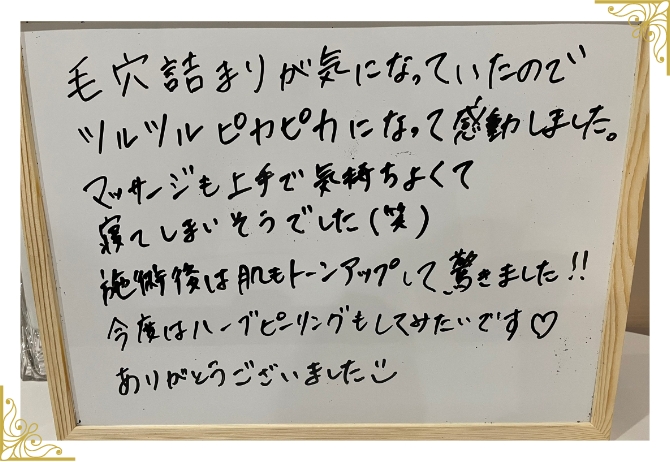 毛穴詰まりが気になっていたので
ツルツルピカピカになって感動しました。
マッサージも上手で気持ちよくて
寝てしまいそうでした(笑)
施術後は肌もトーンアップして驚きました!!
今度はハーブピーリングもしてみたいです♡
ありがとうございました